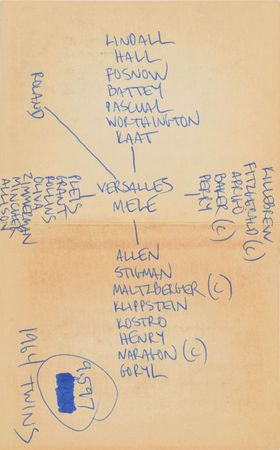 KINDALL
HALL
FOSNOW
BATTEY
PASCUAL
WORTHINGTON
KAAT
ROLAND
KILLEBREW
FITZGERALD (C)
ARRIGO
BAKER (C)
PERRY
VERSALLES
MELE
PLEIS
GRANT
ROLLINS
OLIVA
ZIMMERMAN
MINCHER
ALLISON
ALLEN
STIGMAN
MALTZBERGER (C)
KLIPPSTEIN
KOSTRO
HENRY
NARAGON (C)
GORYL
1964 TWINS
9597